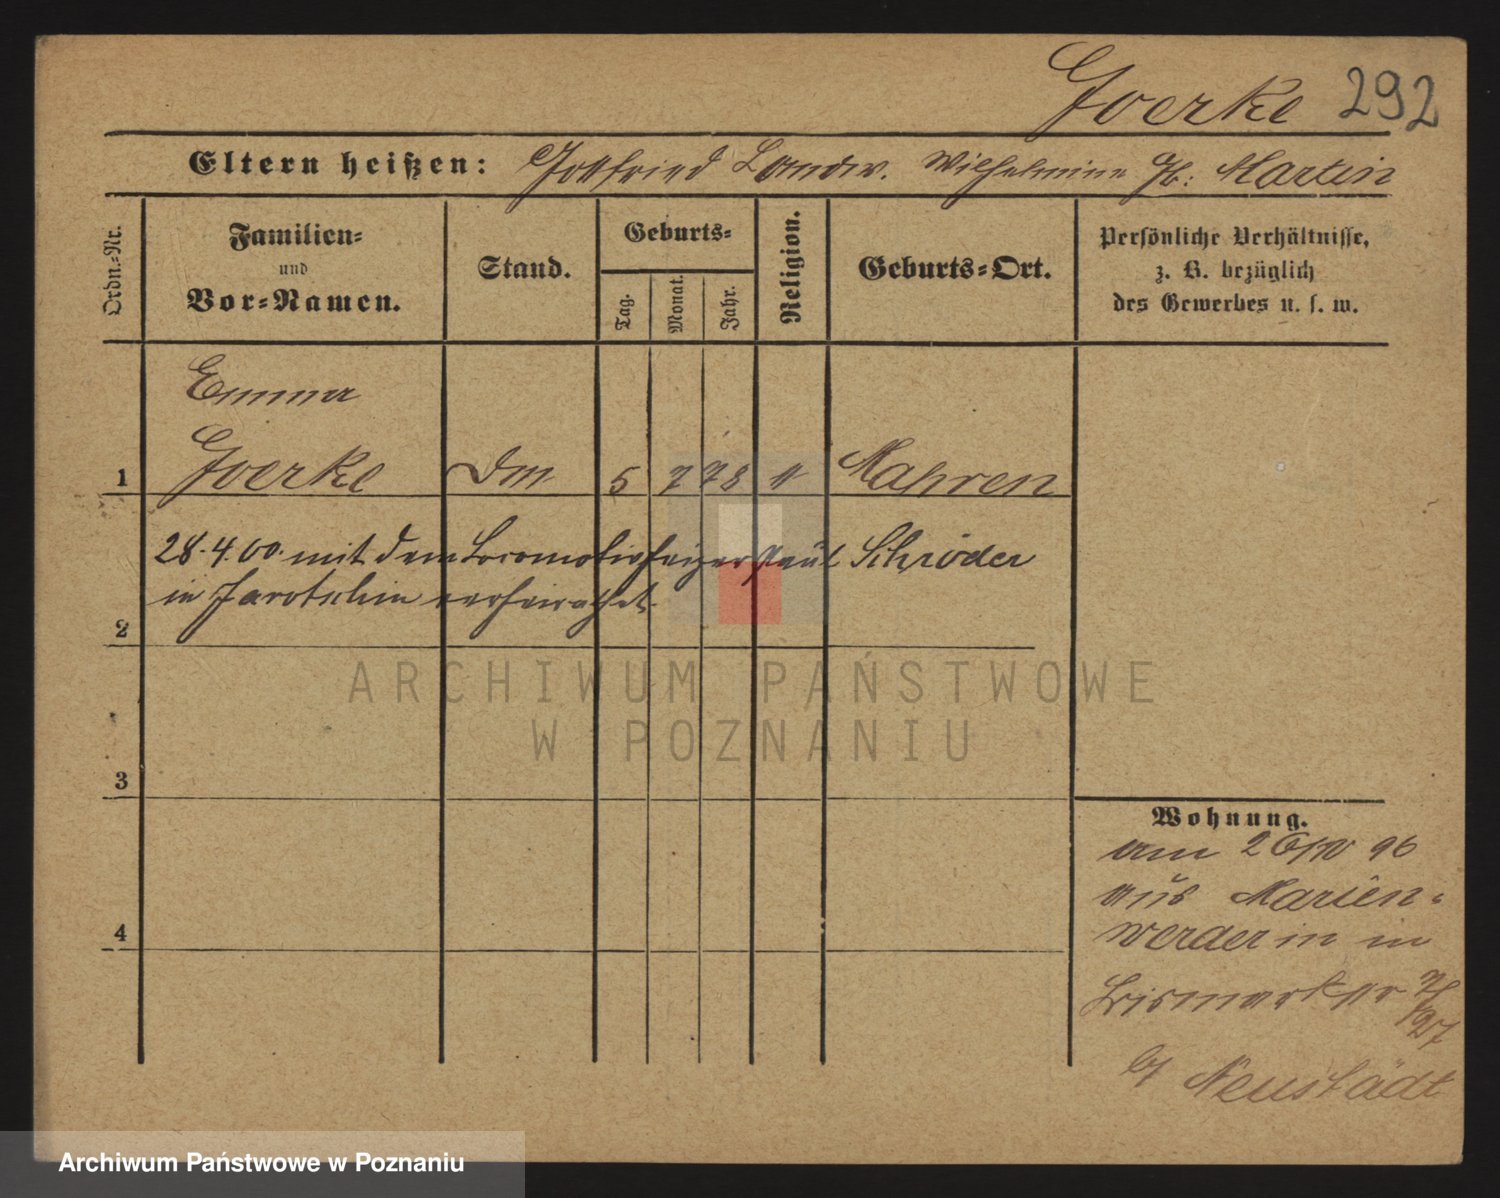 Goerke 292
Eltern heißen: Gottfried Landw. Wilhelmine gb: Martin
Ordn.-Nr.
Familien-
und
Vor-Namen.
Stand.
Geburts-
Tag.
Monat.
Jahr.
Religion.
Geburts-Ort.
Persönliche Verhältnisse,
z. B. bezüglich
des Gewerbes u. s. w.
Emma
1 Goerke 5 7 78 Mahren
28.4.00. mit dem Locomotivheizer Paul Schröder
in Jarotschin verheirathet.
2
3
4
Wohnung.
am 96
aus Marien-
werder in
Bismarckstr
Neustädt
ARCHIWUM PAŃSTWOWE
W POZNANIU
Archiwum Państwowe w Poznaniu